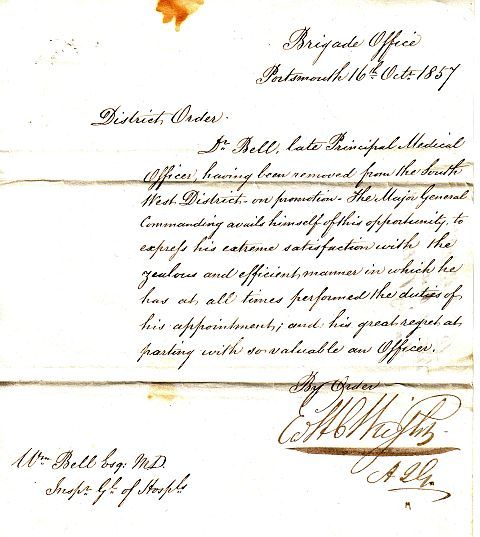 Brigade Office
Portsmouth 16th Octr 1857
District Order.
Dr Bell, late Principal Medical
Officer, having been removed from the South
West District on promotion. The Major General
Commanding avails himself of this opportunity, to
express his extreme satisfaction with the
zealous and efficient manner in which he
has at all times performed the duties of
his appointment; and his great regret at
parting with so valuable an Officer.
By Order
Wright
A.Q.G.
Wm Bell Esqr M.D.
Inspr Gl of Hospls